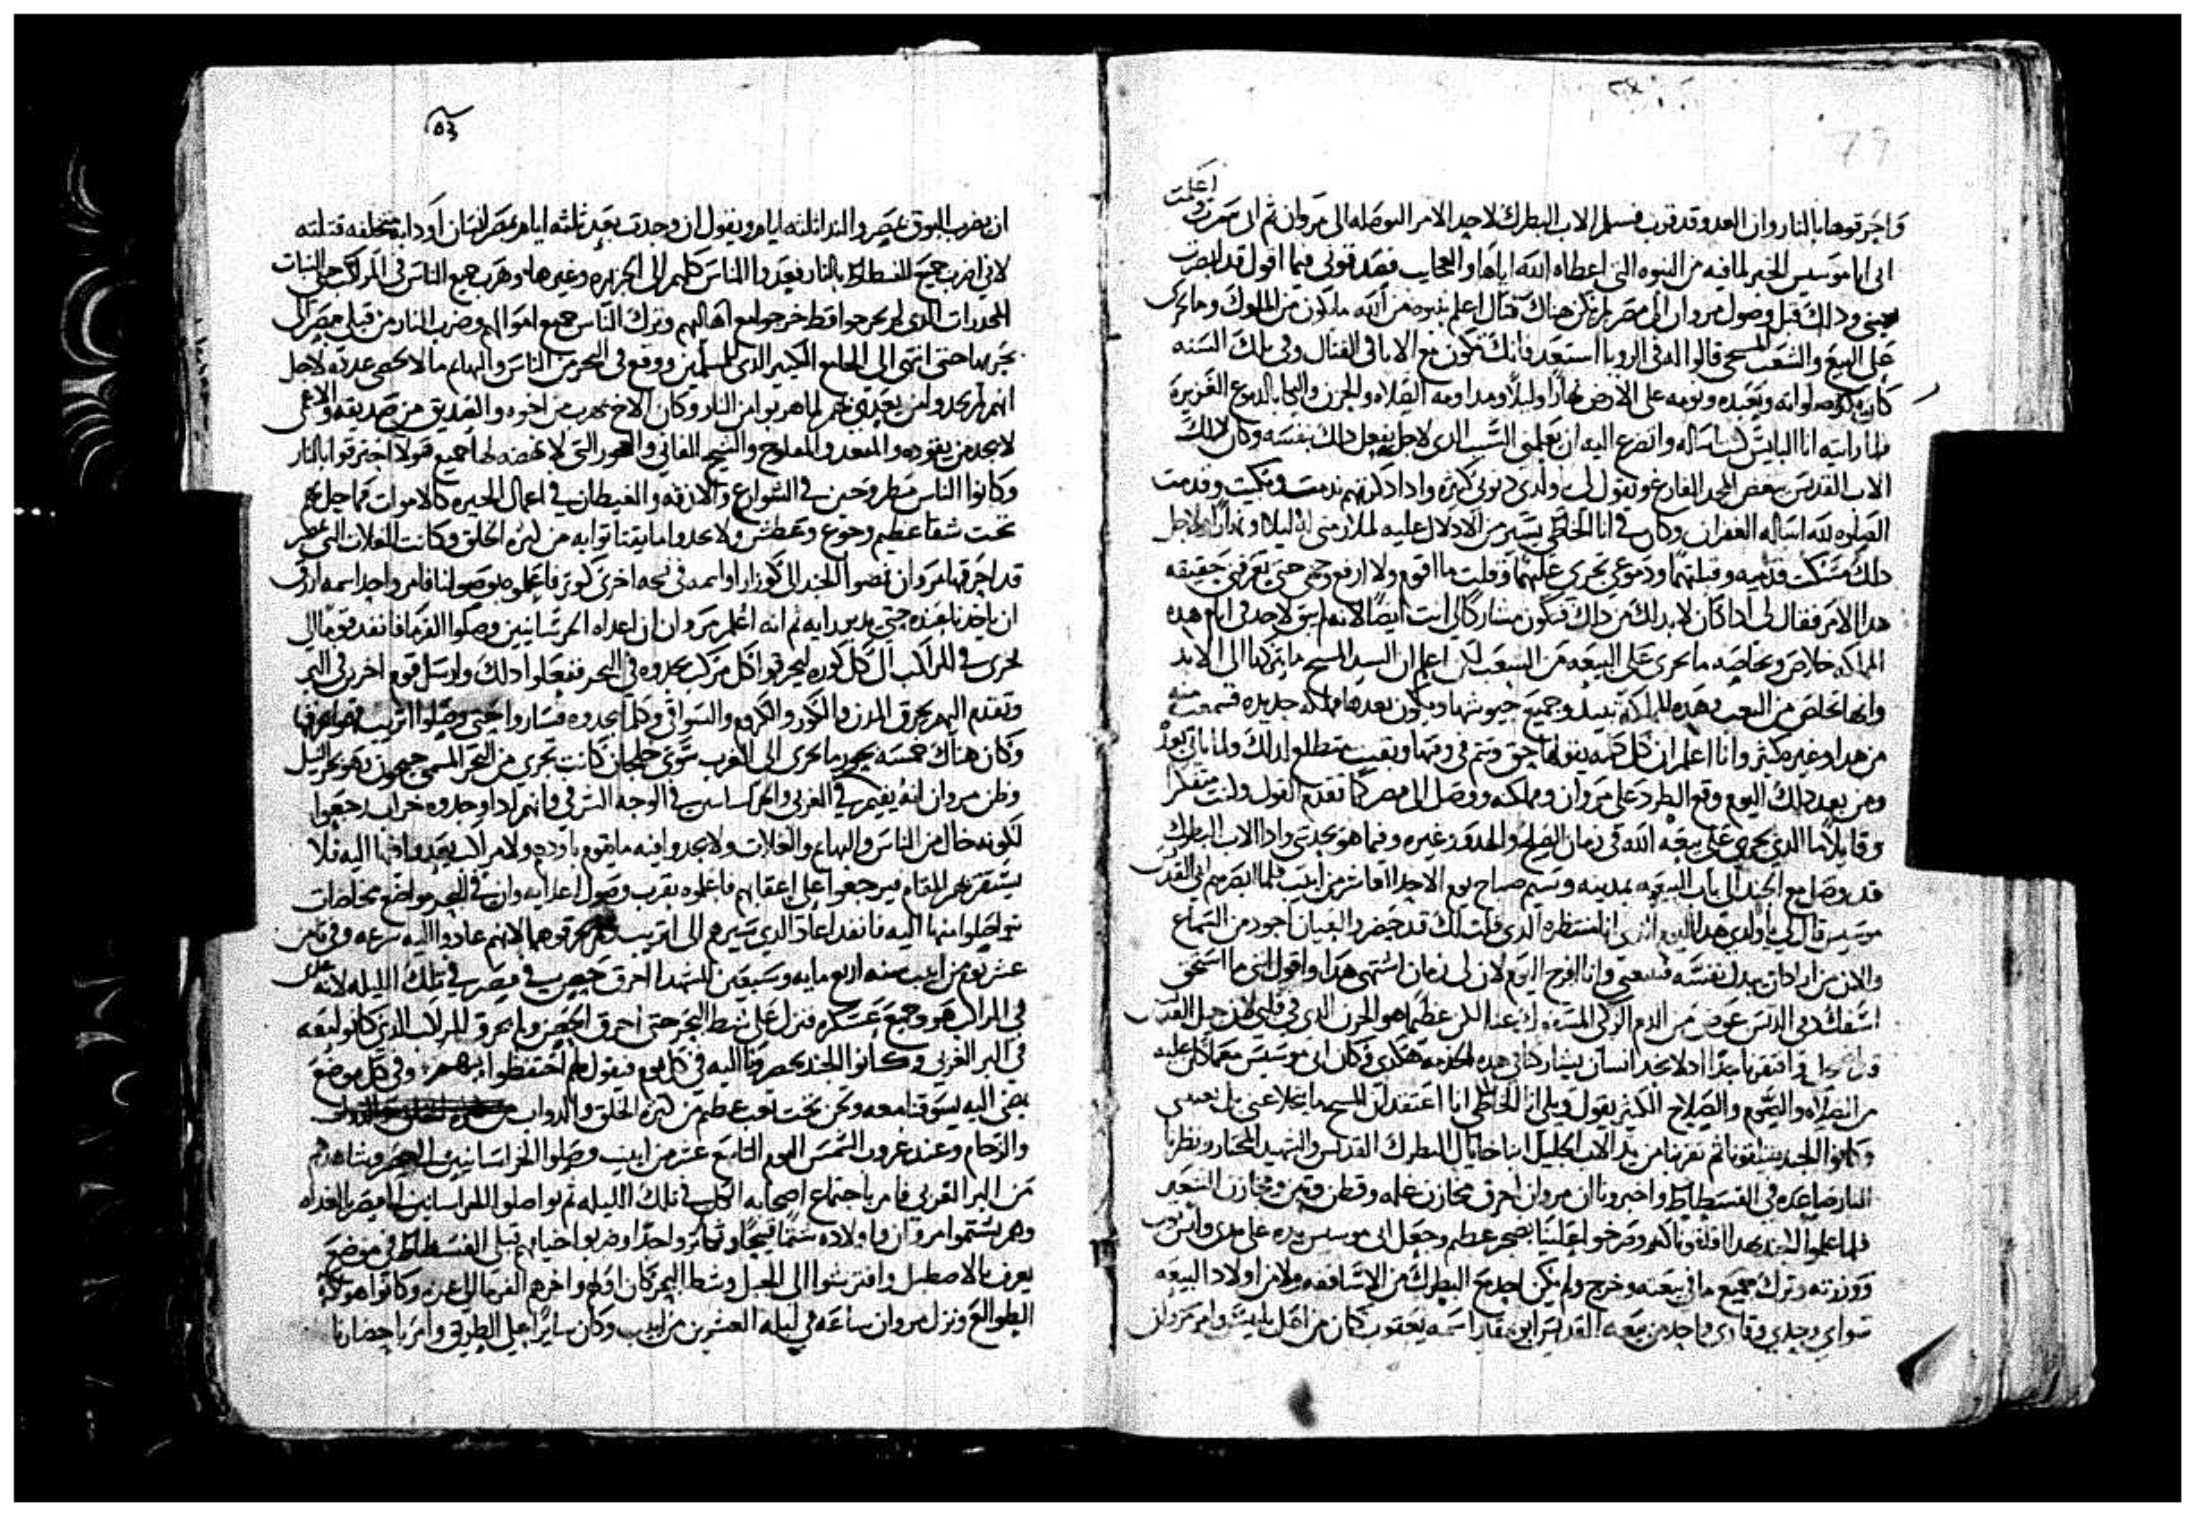 واحرقوها بالنار وان العدو قد قرب فسلم الاب البطرك لاحد الامرا ليوصله الى مروان ثم الى
اعلمت
ابي انبا موسيس الخبر لما فيه من النبوه التي اعطاه الله اياها والعجايب فصدقوني فيما اقول قد ابصرت
بعيني ودلك قبل وصول مروان الى مصر لم نكن هناك فقال اعلم بنبوه من الله ما يكون من الملوك وما يجري
على البيع والشعب المسيحي قالوا له في الرويا استعد فانك تكون مع الابا في القتال وفي تلك السنه
كان يكثر صلواته وتعبده ونومه على الارض نهارا وليلا ومداومه الصلاه والحزن والبكا بالدموع الغزيره
فلما رايته انا البايس كنت اساله واتضرع اليه ان يعلمني السبب الدي لاجله يفعل دلك بنفسه وكان دلك
الاب القديس يبغض المجد الفارغ ويقول لي يا ولدي دنوبي كثيره وادا دكرتهم ندمت وبكيت وقدمت
الصلوه لله اساله الغفران وكان في انا الخاطي يسير من الادلال عليه لملازمتي له ليلا ونهارا لاجل
دلك مسكت قدميه وقبلتهما ودموعي تجري عليهما وقلت ما اقوم ولا ارفع وجهي حتى تعرفني حقيقه
هدا الامر فقال لي ادا كان لا بد لك من داك فتكون مشاركا لي انت ايضا لانه لم يبق لاحد في ايام هده
المملكه خلاص وبخاصه ما يجري على البيعه من التعب لكن اعلم ان السيد المسيح ما يتركنا الى الابد
وانها تخلص من التعب وهده المملكه تبيد وجميع جيوشها ويكون بعدها مملكه جديده فسمعت منه
من هدا وغيره كثير وانا اعلم ان كل كلمه يقولها حق وتتم في وقتها وبقيت متطلعا لدلك ولما ياتي بعد
ومن بعد دلك اليوم وقع الطرد على مروان ومملكته ووصل الى مصر كما تقدم القول وكنت متفكرا
وقايلا ما الدي يجري على بيعه الله في زمان الصلح والهدو وغيره وفيما هو يحدثني وادا الاب البطرك
قد وصل مع الجند الى باب البيعه بمدينه وسيم صباح يوم الاحد العاشر من ابيب فلما ابصرهم ابي القديس
موسيس قال لي يا ولدي هدا اليوم الدي انا منتظره الدي قلت لك قد حضر والعيان اجود من السماع
والان من اراد ان يبدل نفسه فليتبعني وانا افرح اليوم لان لي زمان اشتهي هدا واقول انني ما استحق
اسفك دمي الدنس عوض من الدم الزكي المسفوك عنا لكن عظيما هو الحزن الدي في قلبي
وافتقرنا جدا اد لا نجد انسان يشاركنا في هده الخدمه هكدى وكان ابي موسيس معما كان عليه
من الصلاه والصوم والصلاح الكثير يقول ويلي انا الخاطي انا اعتقد ان المسيح ما يتخلا عني بل يعينني
وكانوا الجند يسلقونا ثم نفرنا من يد الاب الجليل انبا خايال البطرك القديس والشهيد المختار ونظرنا
النار صاعده في الفسطاط واخبرونا ان مروان احرق مخازن غله وقطن وتبن ومخازن الشعير
فلما علموا الجند بهدا اقلقونا كلهم وصرخوا علينا بضجر عظيم وجعل ابي موسيس يده على يدي وانسرب
ووزرته وترك جميع ما في بيعته وخرج ولم يكن احد مع البطرك من الاساقفه ولا من اولاد البيعه
سواي وحدي وقاري واحد من بيعه القديس ابي مقار اسمه يعقوب كان من اهل بلبيس وامر مروان
٥٣
ان يضرب البوق بمصر والندا ثلثه ايام ويقول ان وجدت بعد ثلثه ايام بمصر انسان او دابه متخلفه قتلته
لاني اضرب جميع الفسطاط بالنار فعدوا الناس كلهم الى الجزيره وغيرها وهرب جميع الناس في المراكب حتى البنات
المخدرات الدي لم يخرجوا قط خرجوا مع اهاليهم وترك الناس جميع اموالهم وضرب النار من قبلي مصر الى
بحريها حتى انتهى الى الجامع الكبير الدي للمسلمين ووقع في البحر من الناس والبهايم ما لا يحصى عدده لاجل
انهم لم يجدوا من يعدي بهم لما هربوا من النار وكان الاخ يهرب من اخوه والصديق من صديقه والاعمى
لا يجد من يقوده والمقعد والمفلوج والشيخ الفاني والعجوز التي لا نهضه لها جميع هولا احترقوا بالنار
وكانوا الناس مطروحين في الشوارع والازقه والغيطان في اعمال الجيزه كالاموات مما حل بهم
تحت شقا عظيم وجوع وعطش ولا يجدوا ما يقتاتوا به من كثره الخلق وكانت الغلات التي بمصر
قد احرقها مروان فمضوا الجند الى كوزارا واسمه في نسخه اخرى كوتر فاعلموه بوصولنا فامر واحد اسمه ازرق
ان ياخدنا عنده حتى يدبر رايه ثم انه اعلم مروان ان اعداه الخرسانيين وصلوا الفرما فانفد قوما الى
بحري في المراكب الى كل كوره ليحرقوا كل مركب يجدوه في البحر ففعلوا دلك وارسل قوم اخر في البر
وتقدم اليهم بحرق المدن والكور والكروم والسواقي وكل ما يجدوه فساروا حتى وصلوا اتريب
وكان هناك خمسه بحور ما تجري الى الغرب سوى خلجان كانت تجري من البحر المسمى جيحون وهو بحر النيل
وظن مروان انه يقيم في الغربي والخراسانيين في الوجه الشرقي وانهم ادا وجدوه خراب رجعوا
لكونه خال من الناس والبهايم والغلات ولا يجدوا فيه ما يقوم باودهم ولا مراكب يعدوا فيها اليه فلا
يستقر بهم المقام فيرجعوا على اعقابهم فاعلموه بقرب وصول اعدايه وان في البحر مواضع مخاضات
يتواصلوا منها اليه فانفد اعاد الدي سيرهم الى اتريب ولم يحرقوها لانهم عادوا اليه سرعه وفي تامن
عشر يوم من ابيب سنه اربع مايه وسبعين للشهدا احرق حصن في مصر في تلك الليله لانه عدى
في المراكب هو وجميع عسكره فنزل على شط البحر حتى احرق الحصن ولم يحرق المراكب الدي كانوا معه
في البر الغربي وكانوا الجند يحضرونا اليه في كل يوم فيقول لهم احتفظوا بهم وفي كل موضع
يمضي اليه يسوقنا معه ونحن تحت تعب عظيم من كثره الخلق والدواب
والزحام وعند غروب الشمس اليوم التاسع عشر من ابيب وصلوا الخراسانيين وشاهدهم
من البر الغربي فامر باجتماع اصحابه الكل في تلك الليله ثم تواصلوا الخراسانيين الى مصر بالغداه
وهم يشتموا مروان واولاده شتما قبيحا وتكاثروا جدا وضربوا خيامهم قبلي الفسطاط في موضع
يعرف بالاصطبل وافترشوا الى الجبل وشط البحر كان اولهم واخرهم الفرما الى غزه وكانوا هولاي
الطوالع ونزل مروان ساعه في ليله العشرين من ابيب وكان سايرا على الطريق وامر باحضارنا